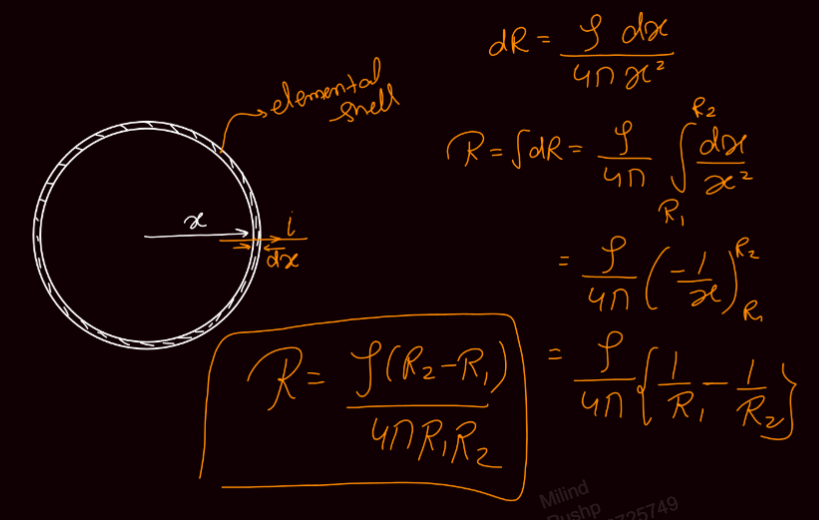 elemental
shell
x
i
dx
dR = ρ dx / 4π x²
R = ∫dR = ρ / 4π ∫_{R₁}^{R₂} dx / x²
= ρ / 4π (-1 / x)_{R₁}^{R₂}
= ρ / 4π {1 / R₁ - 1 / R₂}
R = ρ(R₂-R₁) / 4πR₁R₂
Milind
Pushp
725749